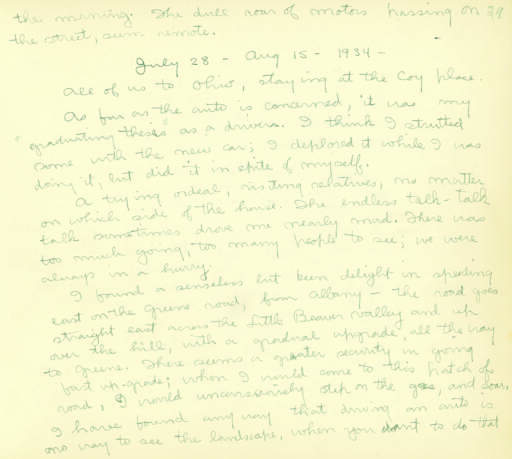 the morning. The dull roar of motors passing on 39
the street, seem remote.
July 28 - Aug 15 - 1934 -
All of us to Ohio, staying at the Coy place.
As far as the auto is concerned, it was my
"graduating thesis" as a driver. I think I strutted
some with the new car; I deplored it while I was
doing it, but did it in spite of myself.
A trying ordeal, visiting relatives, no matter
on which side of the house. The endless talk-talk
talk sometimes drove me nearly mad. There was
too much going, too many people to see; we were
always in a hurry.
I found a senseless but keen delight in speeding
east on the Greene road, from Albany - the road goes
straight east across the Little Beaver valley and up
over the hill, with a gradual upgrade all the way
to Greene. There seems a greater security in going
fast up-grade; when I would come to this patch of
road, I would unconsciously step on the gas, and soar.
I have found anyway that driving an auto is
no way to see the landscape, when you want to do that